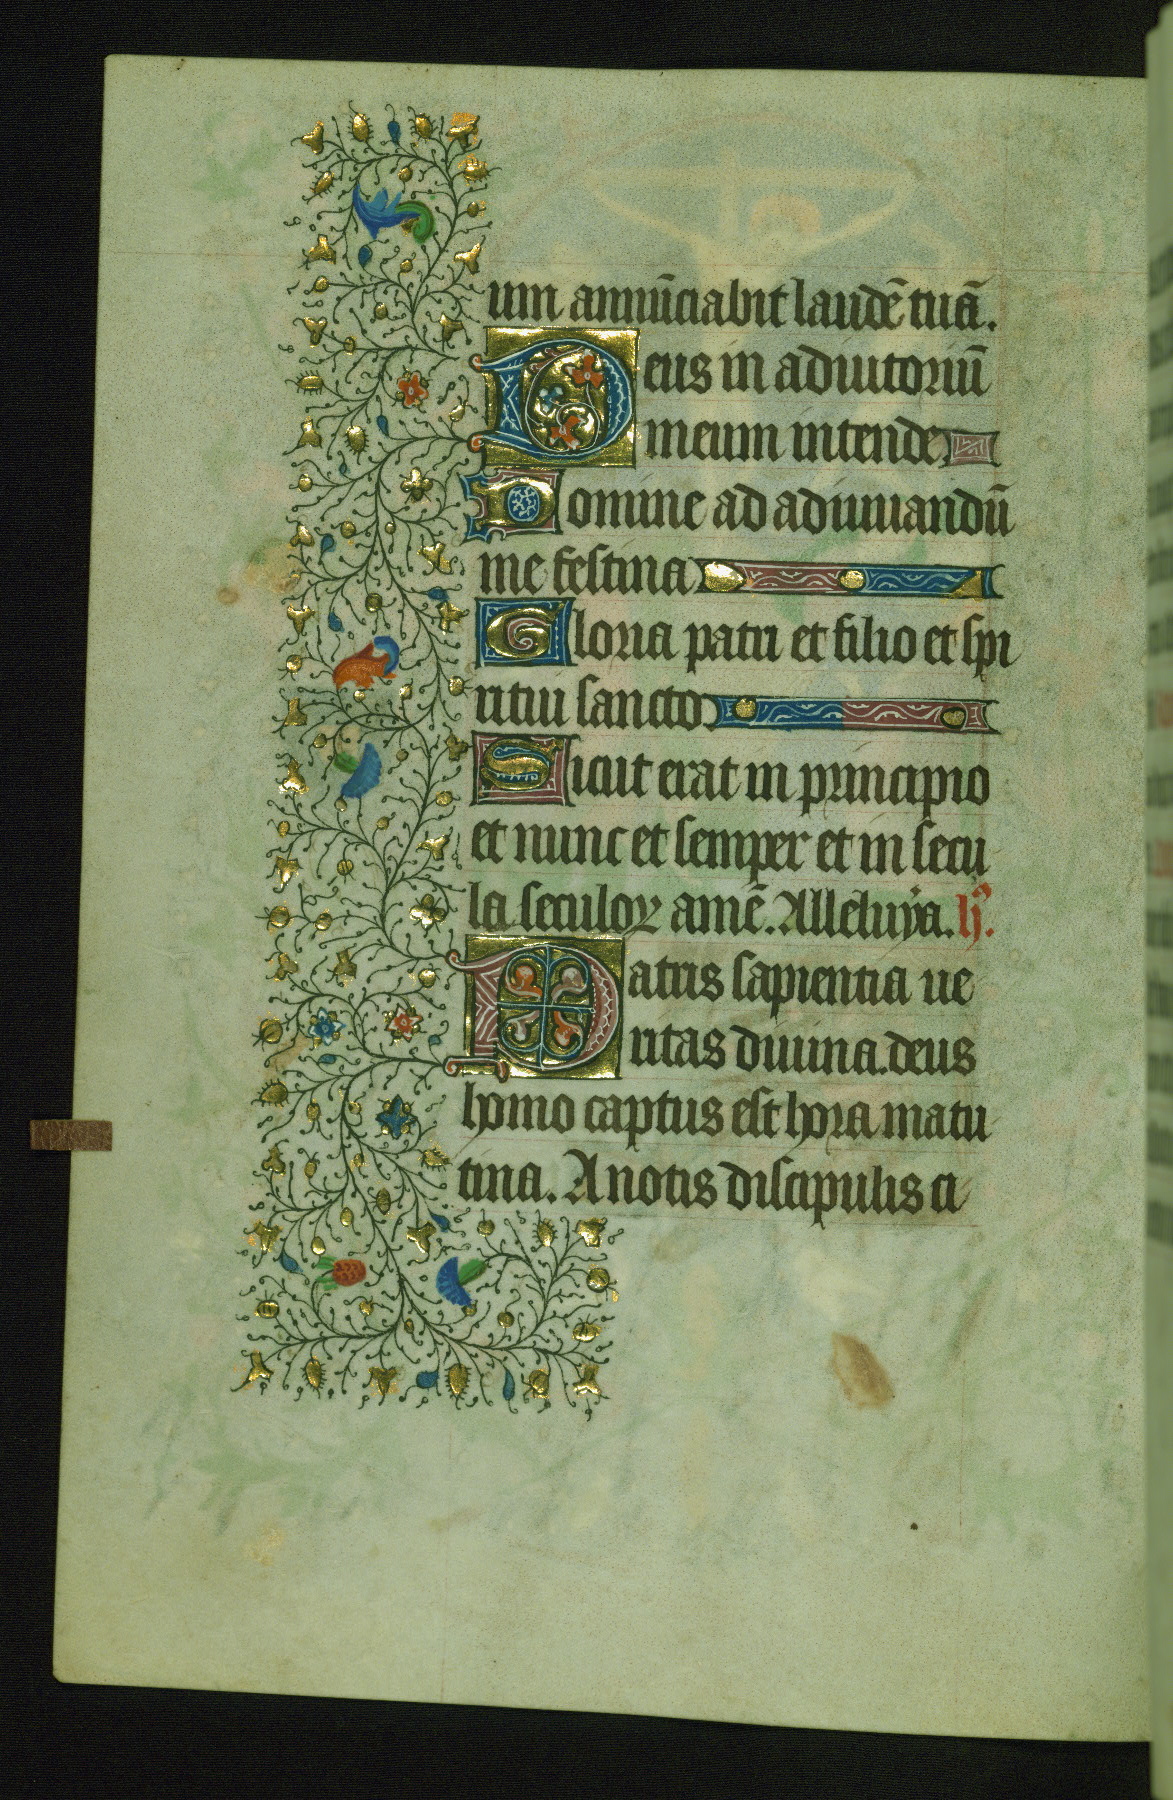 um annūciabit laudē tuā.
Deus in adiutoriū
meum intende
Domine ad adiuuandū
me festina
Gloria patri et filio et spi
ritui sancto
Sicut erat in principio
et nunc et semper et in secu
la seculoꝝ amē. Alleluya. hỹ.
Patris sapientia ue
ritas diuina. deus
homo captus est hora matu
tina. A notis discipulis ci